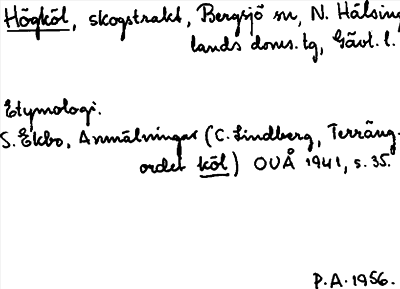 Högköl, skogstrakt, Bergsjö sn, N. Hälsing
lands doms. tg, Gävl. l.
Etymologi.
S. Ekbo, Anmälningar (C. Lindberg, Terräng-
ordet köl) OUÅ 1941, s. 35.
P.A. 1956.